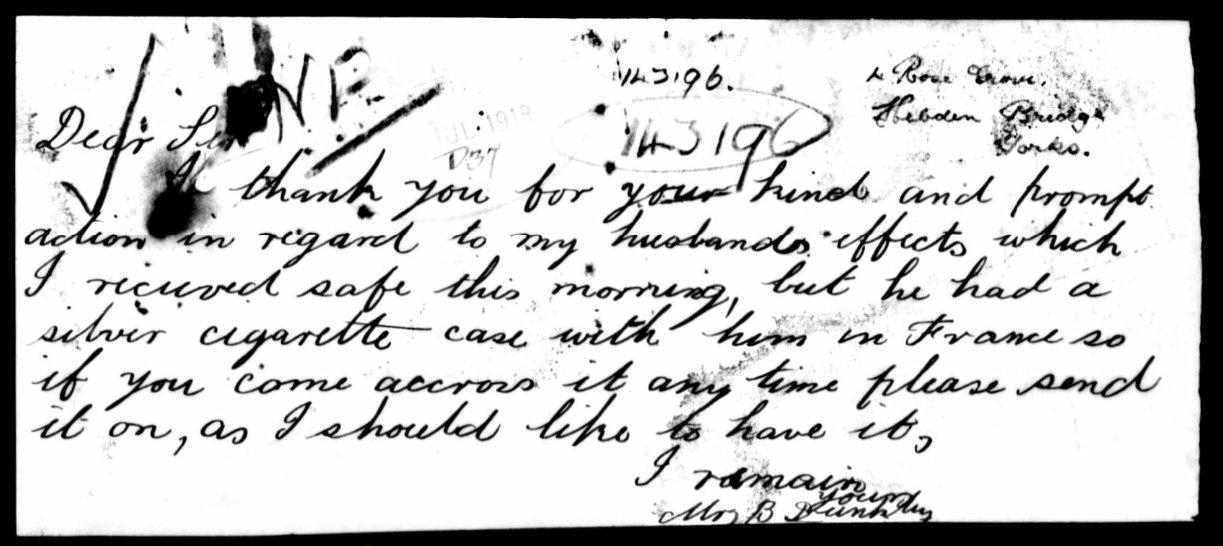 143196.
4 Rose Grove.
Hebden Bridge
Yorks.
143196
JUL 1919
D37
Dear Sir
I thank you for your kind and prompt
action in regard to my husbands effects which
I recieved safe this morning, but he had a
silver cigarette case with him in France so
if you come accross it any time please send
it on, as I should like to have it,
I remain
yours
Mrs B